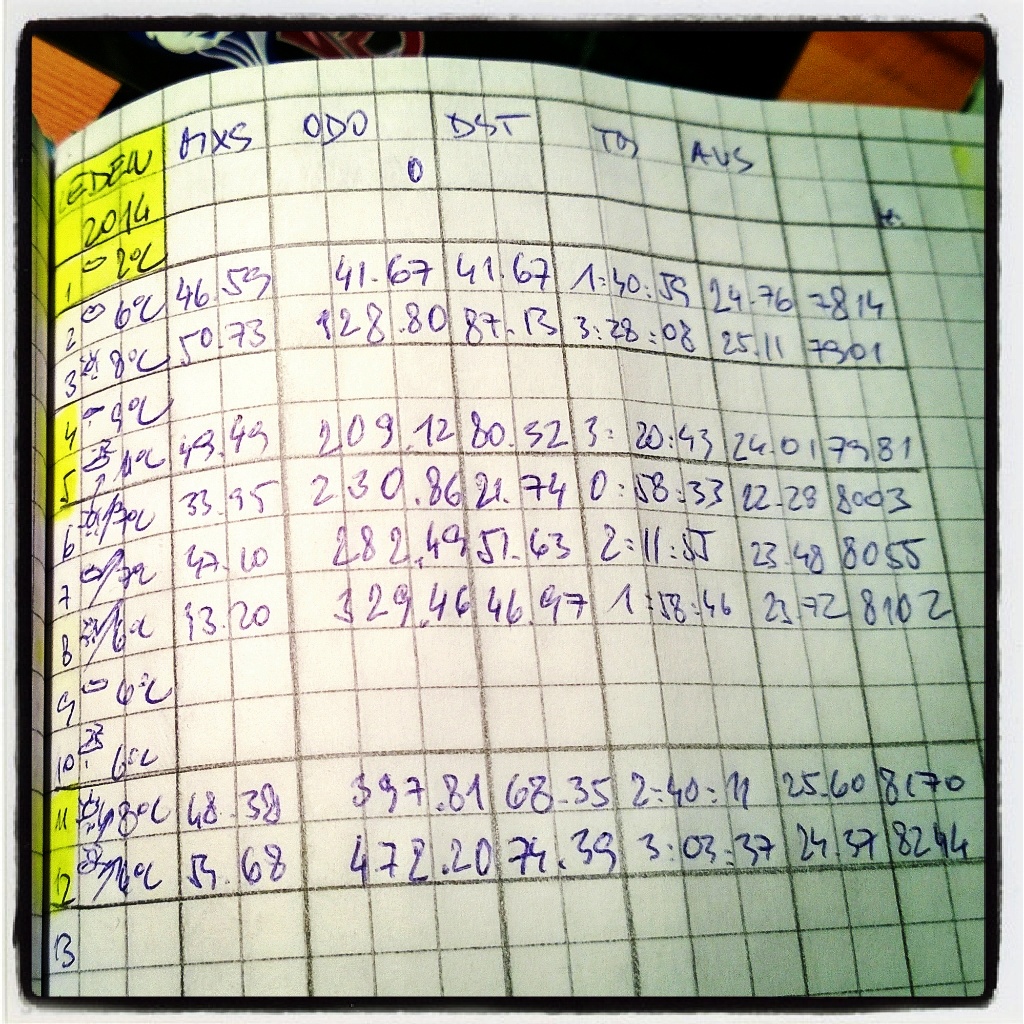 LEDEN MXS ODO DST TM AVS
2014 0
1 2°C
2 6°C 46.59 41.67 41.67 1:40:59 24.76 7814
3 8°C 50.73 128.80 87.13 3:28:08 25.11 7901
4 9°C
5 11°C 49.49 209.12 80.32 3:20:43 24.01 7981
6 33.95 230.86 21.74 0:58:33 22.28 8003
7 47.10 282.49 51.63 2:11:55 23.48 8055
8 6°C 43.20 329.46 46.97 1:58:46 23.72 8102
9 6°C
10 6°C
11 8°C 48.38 397.81 68.35 2:40:11 25.60 8170
12 53.68 472.20 74.39 3:03:37 24.37 8244
13